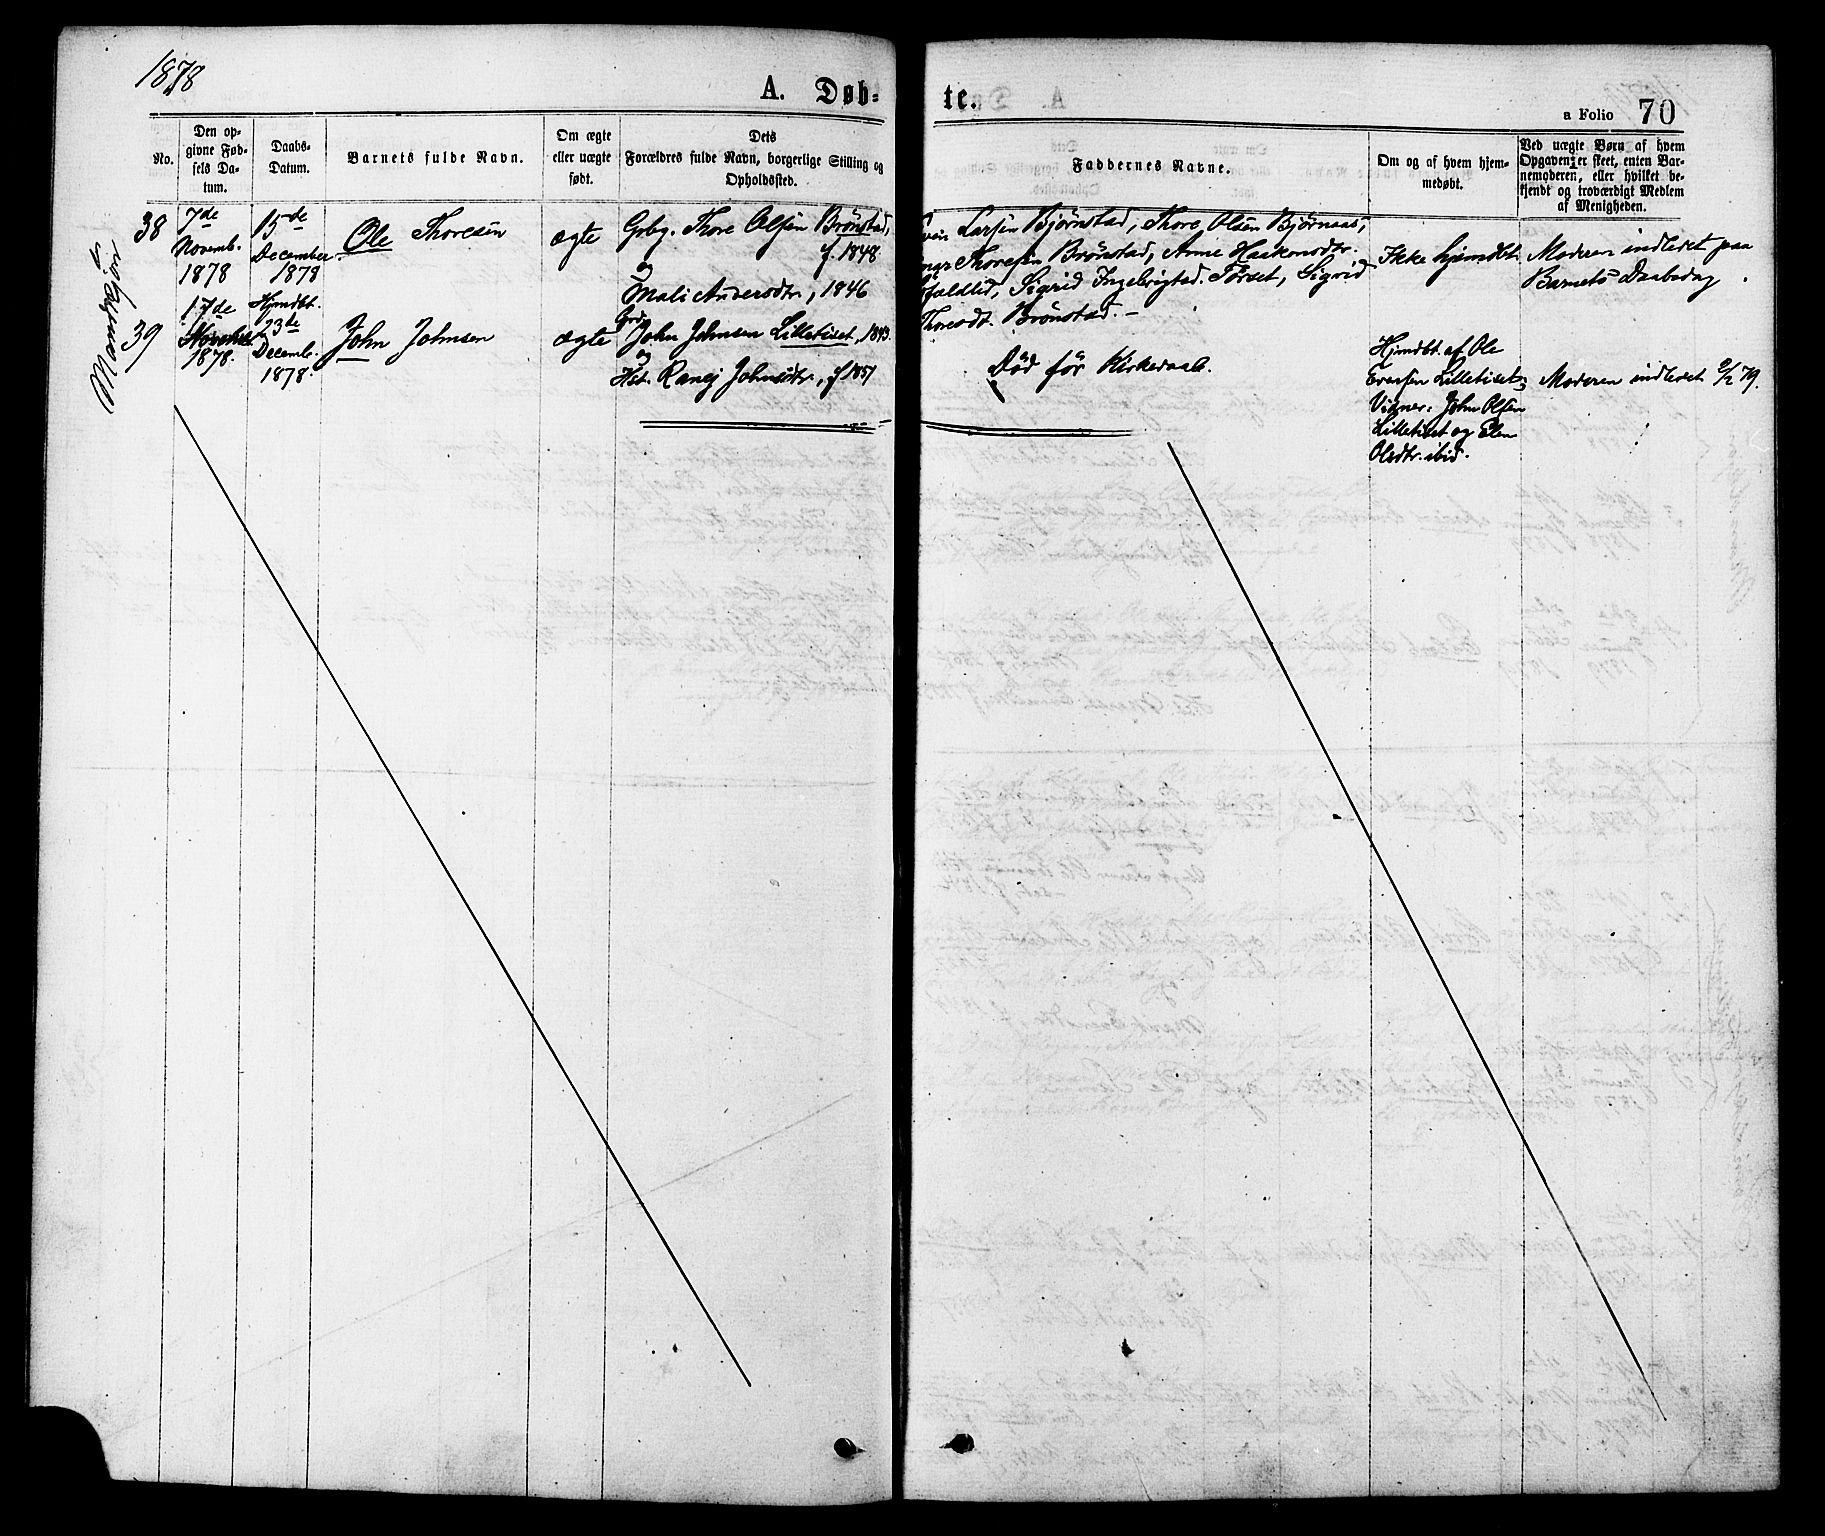 1878
A. Døb-
te.
a Folio 70
No.
Den op-
givne Fød-
sels Da-
tum.
Daabs-
Datum.
Barnets fulde Navn.
Om ægte
eller uægte
født.
Dets
Forældres fulde Navn, borgerlige Stilling og
Opholdssted.
Faddernes Navne.
Om og af hvem hjem-
medøbt.
Ved uægte Børn af hvem
Opgaven er skeet, enten Bar-
nemoderen, eller hvilket be-
kjendt og troværdigt Medlem
af Menigheden.
38
7de
Novemb.
1878
15de
December
1878
Ole Thoresen
ægte
Grbg. Thore Olsen Brönstad,
f. 1848
og
Mali Andersdtr., 1846
Larsen Bjørnstad, Thore Olsen Bjørnaas,
Thoresen Brönstad, Anne Haakonsdtr.
Sigrid Ingebrigtsd. Törset, Sigrid
Thoresdt. Brönstad. -
Ikke hjemdbt.
Moderen indledet paa
Barnets Daabsdag
Mandskjøn
39
17de
Novemb.
1878.
Hjemdbt.
23de
Decemb.
1878.
John Johnsen
ægte
Grd.
John Johnsen Lilletiset, 1843.
og
Hst. Ranej Johnsdtr., f 1851
Död för Kirkedaab.
Hjemdbt. af Ole
Evensen Lilletiset,
Vidner: John Olsen
Lilletiset og Elen
Olsdtr. ibid.
Moderen indledet 2/2 79.